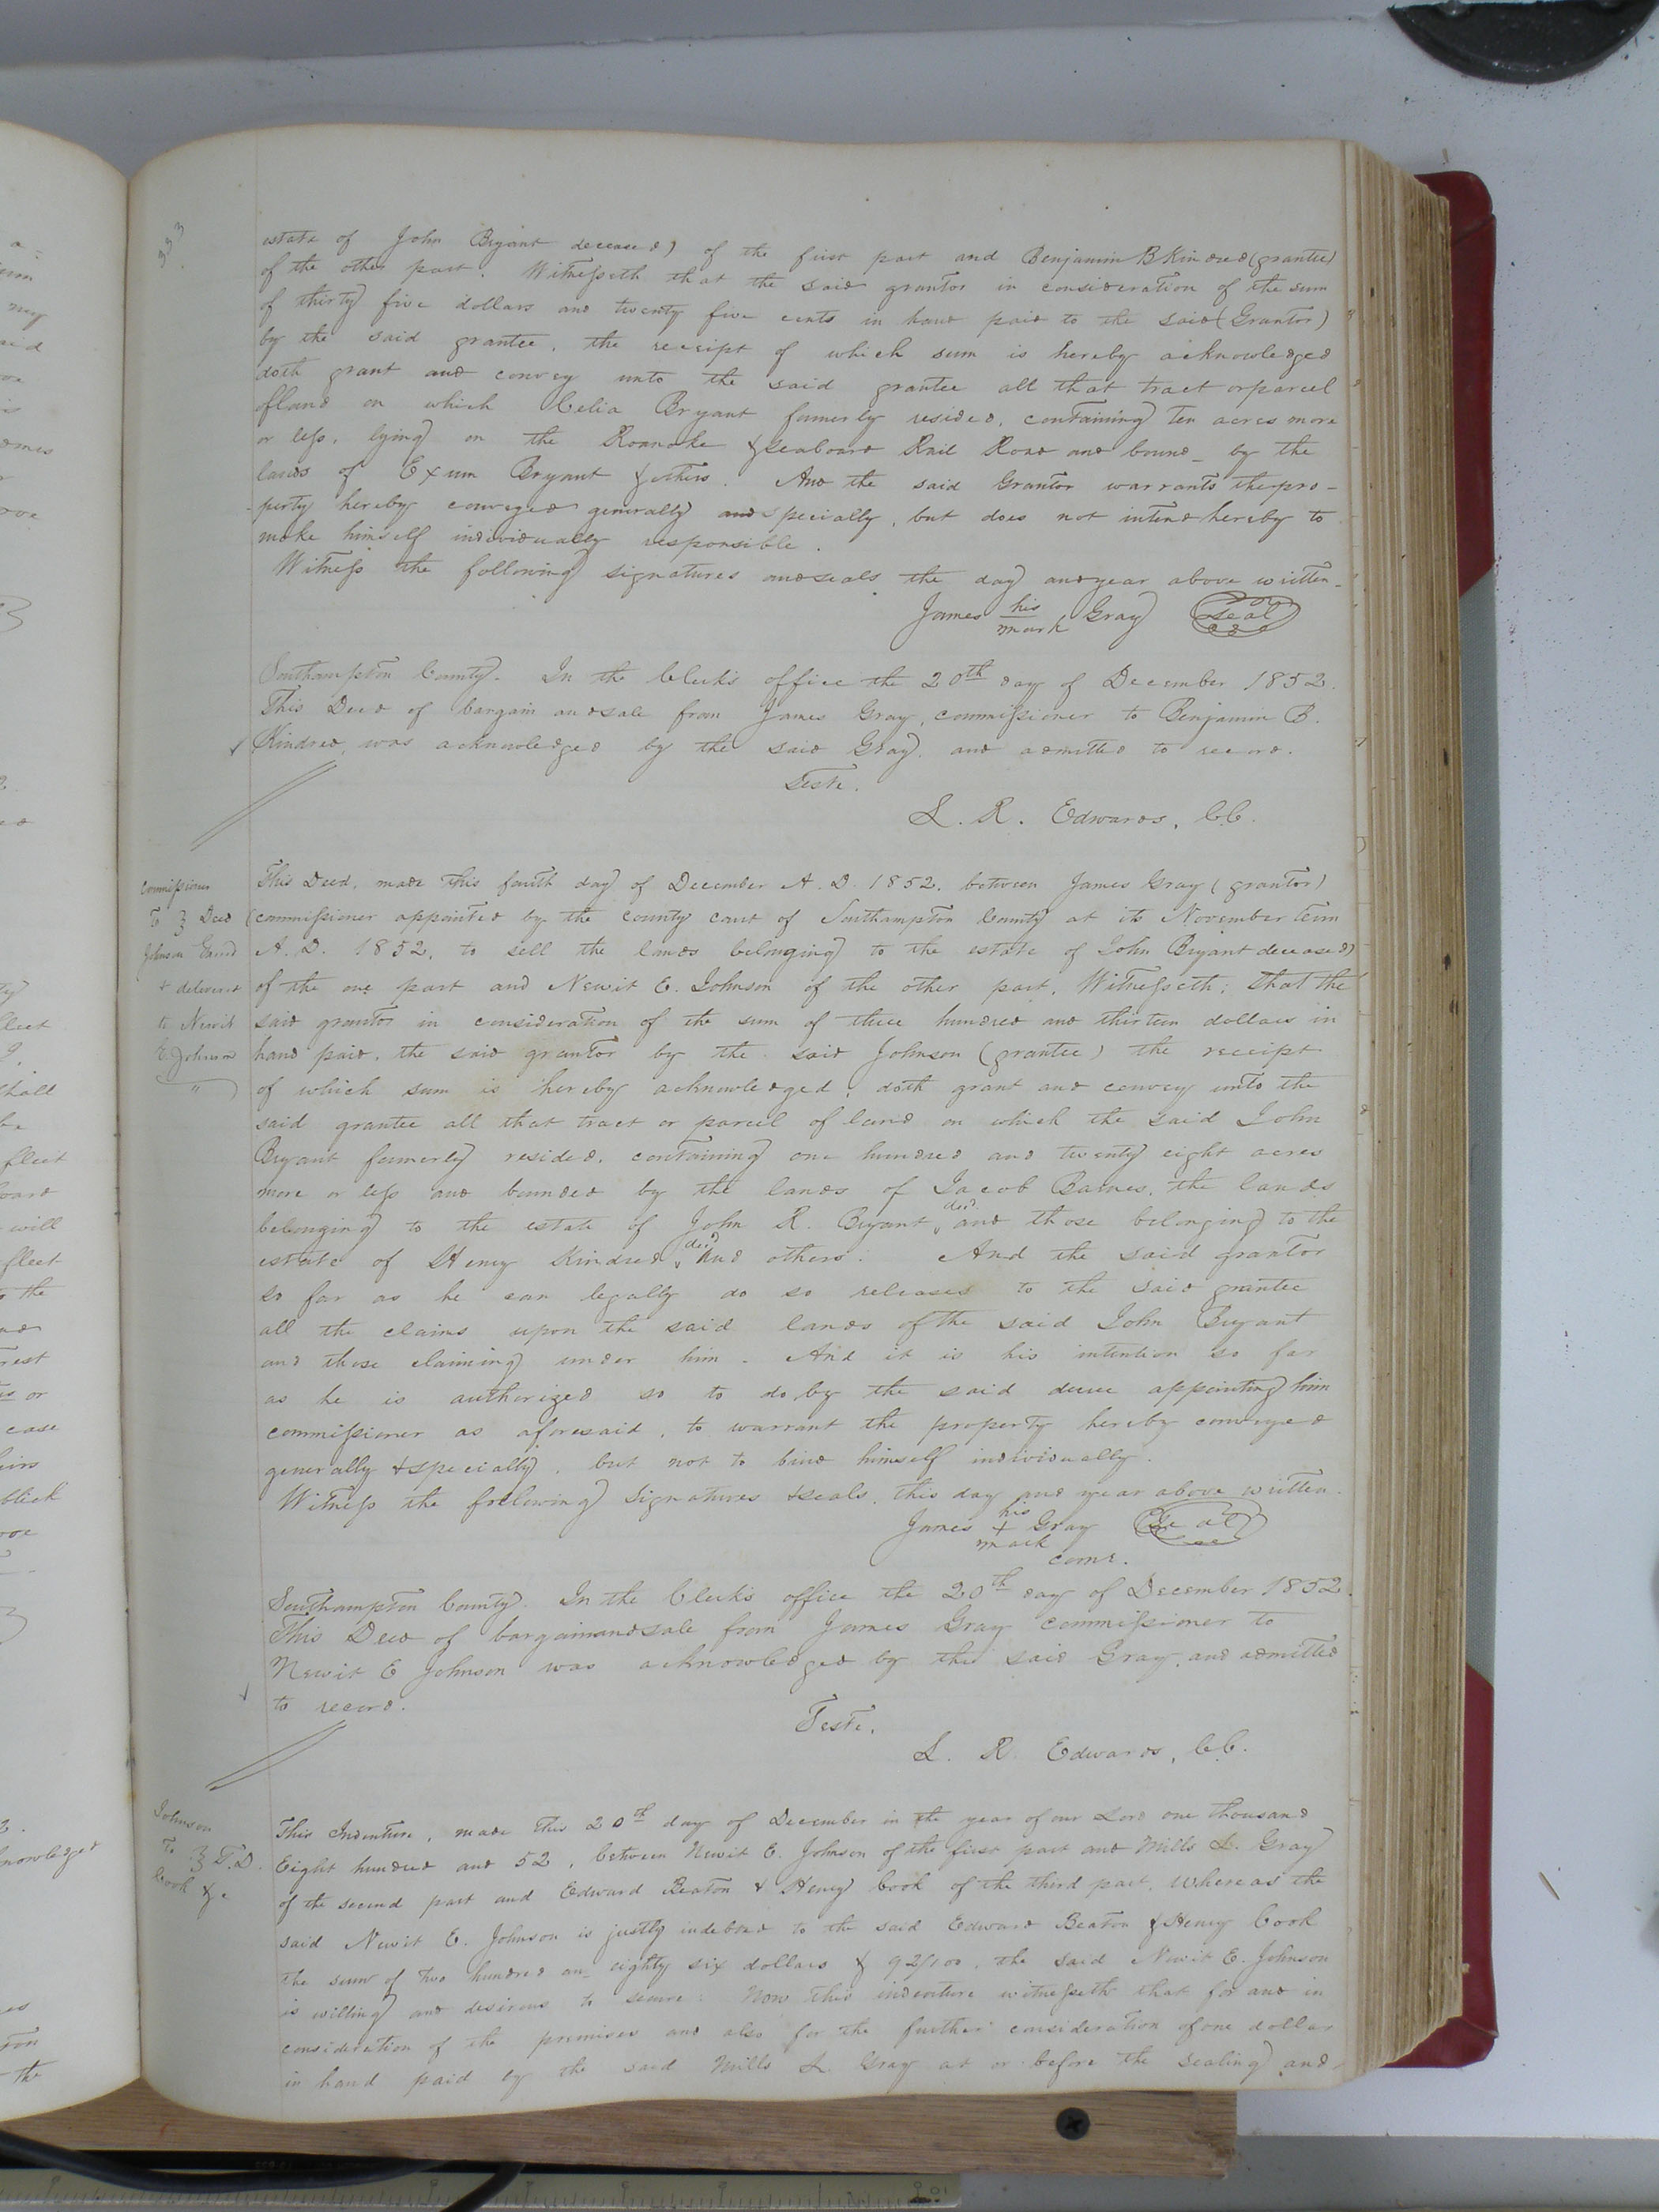 333
estate of John Bryant deceased) of the first part and Benjamin B Kindred (grantee)
of the other part. Witnesseth that the said grantor in consideration of the sum
of thirty five dollars and twenty five cents in hand paid to the said (Grantor)
by the said grantee, the receipt of which sum is hereby acknowledged
doth grant and convey unto the said grantee all that tract or parcel
of land on which Celia Bryant formerly resided, containing ten acres more
or less, lying on the Roanoke & Seaboard Rail Road and bound_ by the
lands of Exum Bryant & others. And the said Grantor warrants the pro-
perty hereby conveyed generally and specially, but does not intend hereby to
make himself individually responsible.
Witness the following signatures and seals the day and year above written.
James his mark Gray seal
Southampton County. In the Clerk's office the 20th day of December 1852.
This Deed of bargain and sale from James Gray, commissioner to Benjamin B.
Kindred, was acknowledged by the said Gray, and admitted to record.
Teste.
L. R. Edwards, C.C.
Commissioner
To } Deed
Johnson
& delivered
to Newit
E. Johnson
"
This Deed, made this fourth day of December A. D. 1852, between James Gray (grantor)
(commissioner appointed by the county court of Southampton County at its November term
A. D. 1852, to sell the lands belonging to the estate of John Bryant deceased)
of the one part and Newit E. Johnson of the other part, Witnesseth; that the
said grantor in consideration of the sum of three hundred and thirteen dollars in
hand paid, the said grantor by the said Johnson (grantee) the receipt
of which sum is hereby acknowledged, doth grant and convey unto the
said grantee all that tract or parcel of land on which the said John
Bryant formerly resided, containing one hundred and twenty eight acres
more or less and bounded by the lands of Jacob Barnes, the lands
belonging to the estate of John R. Bryant, decd. and those belonging to the
estate of Henry Kindred, decd. and others. And the said grantor
so far as he can legally do so releases to the said grantee
all the claims upon the said lands of the said John Bryant
and those claiming under him. And it is his intention so far
as he is authorized so to do by the said decree appointing him
commissioner as aforesaid, to warrant the property hereby conveyed
generally & specially, but not to bind himself individually.
Witness the following signatures & seals, this day and year above written.
James his + mark Gray Seal
comr.
Southampton County. In the Clerk's office the 20th day of December 1852.
This Deed of bargain and sale from James Gray commissioner to
Newit E Johnson was acknowledged by the said Gray, and admitted
to record.
Teste.
L. R. Edwards, C.C.
Johnson
To } T.D.
Cook &c
This Indenture, made this 20th day of December in the year of our Lord one thousand
Eight hundred and 52, between Newit E. Johnson of the first part and Mills L. Gray
of the second part and Edward Beaton & Henry Cook of the third part, Whereas the
said Newit E. Johnson is justly indebted to the said Edward Beaton & Henry Cook
the sum of two hundred an_ eighty six dollars & 92/100, the said Newit E. Johnson
is willing and desirous to secure: Now this indenture witnesseth that for and in
consideration of the premises and also for the further consideration of one dollar
in hand paid by the said Mills L. Gray at or before the sealing and